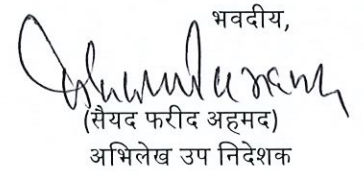 भवदीय,
(सैयद फरीद अहमद)
अभिलेख उप निदेशक